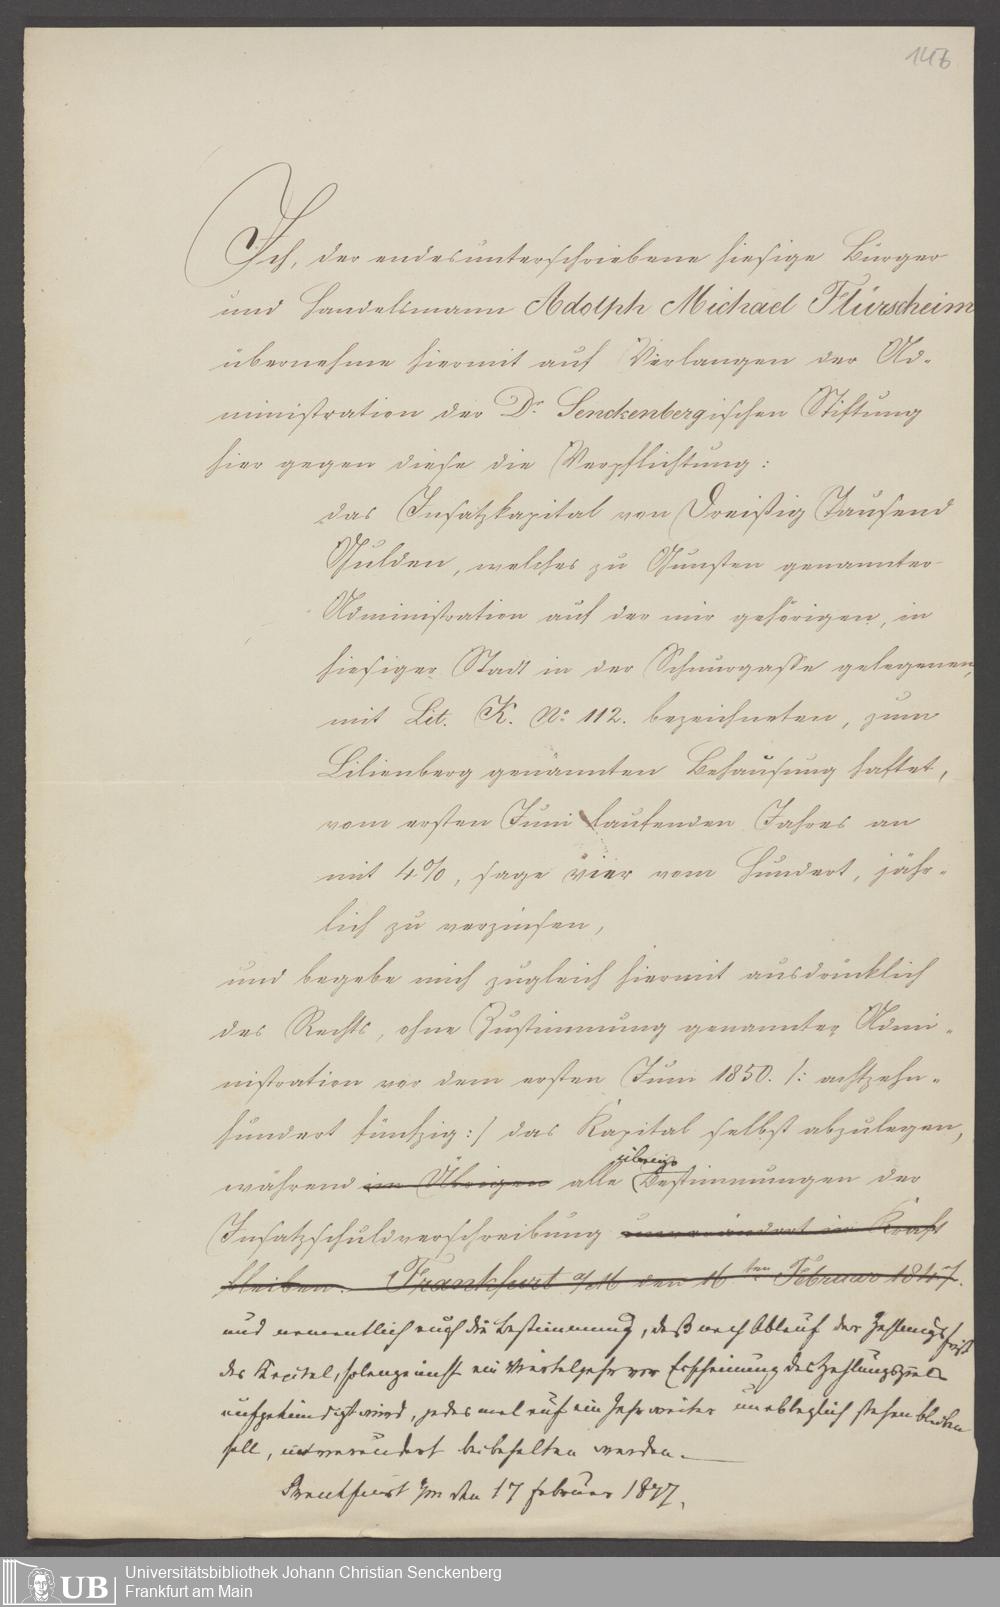 146
Ich, der endesunterschriebene hiesige Bürger
und Handelsmann Adolph Michael Flürscheim
übernehme hiermit auf Verlangen der Ad-
ministration der Dr. Senckenbergischen Stiftung
hier gegen diese die Verpflichtung:
das Insatzkapital von Dreißig Tausend
Gulden, welches zu Gunsten genannter
Administration auf der mir gehörigen, in
hiesiger Stadt in der Schnurgasse gelegenen,
mit Lit. K. No. 112. bezeichneten, zum
Lilienberg genannten Behausung haftet,
vom ersten Juni laufenden Jahres an
mit 4%, sage vier vom Hundert, jähr-
lich zu verzinsen,
und begebe mich zugleich hiermit ausdrücklich
des Rechts, ohne Zustimmung genannter Admi-
nistration vor dem ersten Juni 1850. /: achtzehn-
hundert fünfzig :/ das Kapital selbst abzulegen,
während im Übrigen alle übrigen Bestimmungen der
Insatzschuldverschreibung unverändert in Kraft
bleiben. Frankfurt a/M den 16ten Februar 1847.
und namentlich auch die Bestimmung, daß nach Ablauf der Zahlungsfrist
das Kapital, solange nicht ein Vierteljahr vor Erscheinung des Zahlungsziels
aufgekündigt wird, jedes mal auf ein Jahr weiter unableglich stehen bleiben
soll, unverändert beibehalten werden.
Frankfurt a/m den 17 Februar 1847.
UB
Universitätsbibliothek Johann Christian Senckenberg
Frankfurt am Main